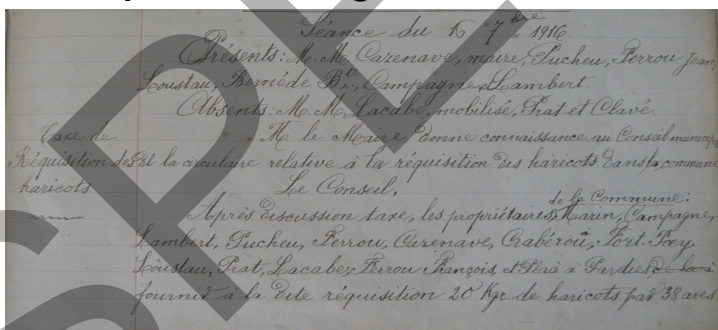 Séance du 16 7bre 1916
Présents: M. M. Cazenave, maire, Pucheu, Perrou Jean,
Loustau, Bernéde Bd., Campagne, Lambert.
Absents: M. M. Lacabe, mobilisé, Prat et Clavé
Taxe de
Réquisition des
haricots
M. le Maire donne connaissance au Conseil municip
et la circulaire relative à la réquisition des haricots dans la commune
Le Conseil,
Après discussion taxe, les propriétaires de la Commune: Marin, Campagne,
Lambert, Pucheu, Ferrou, Cazenave, Gabérou, Fort-Poey
Loustau, Prat, Lacabe, François, et à Pardies
fournir à la dite réquisition 20 Kgr. de haricots par 38 ares